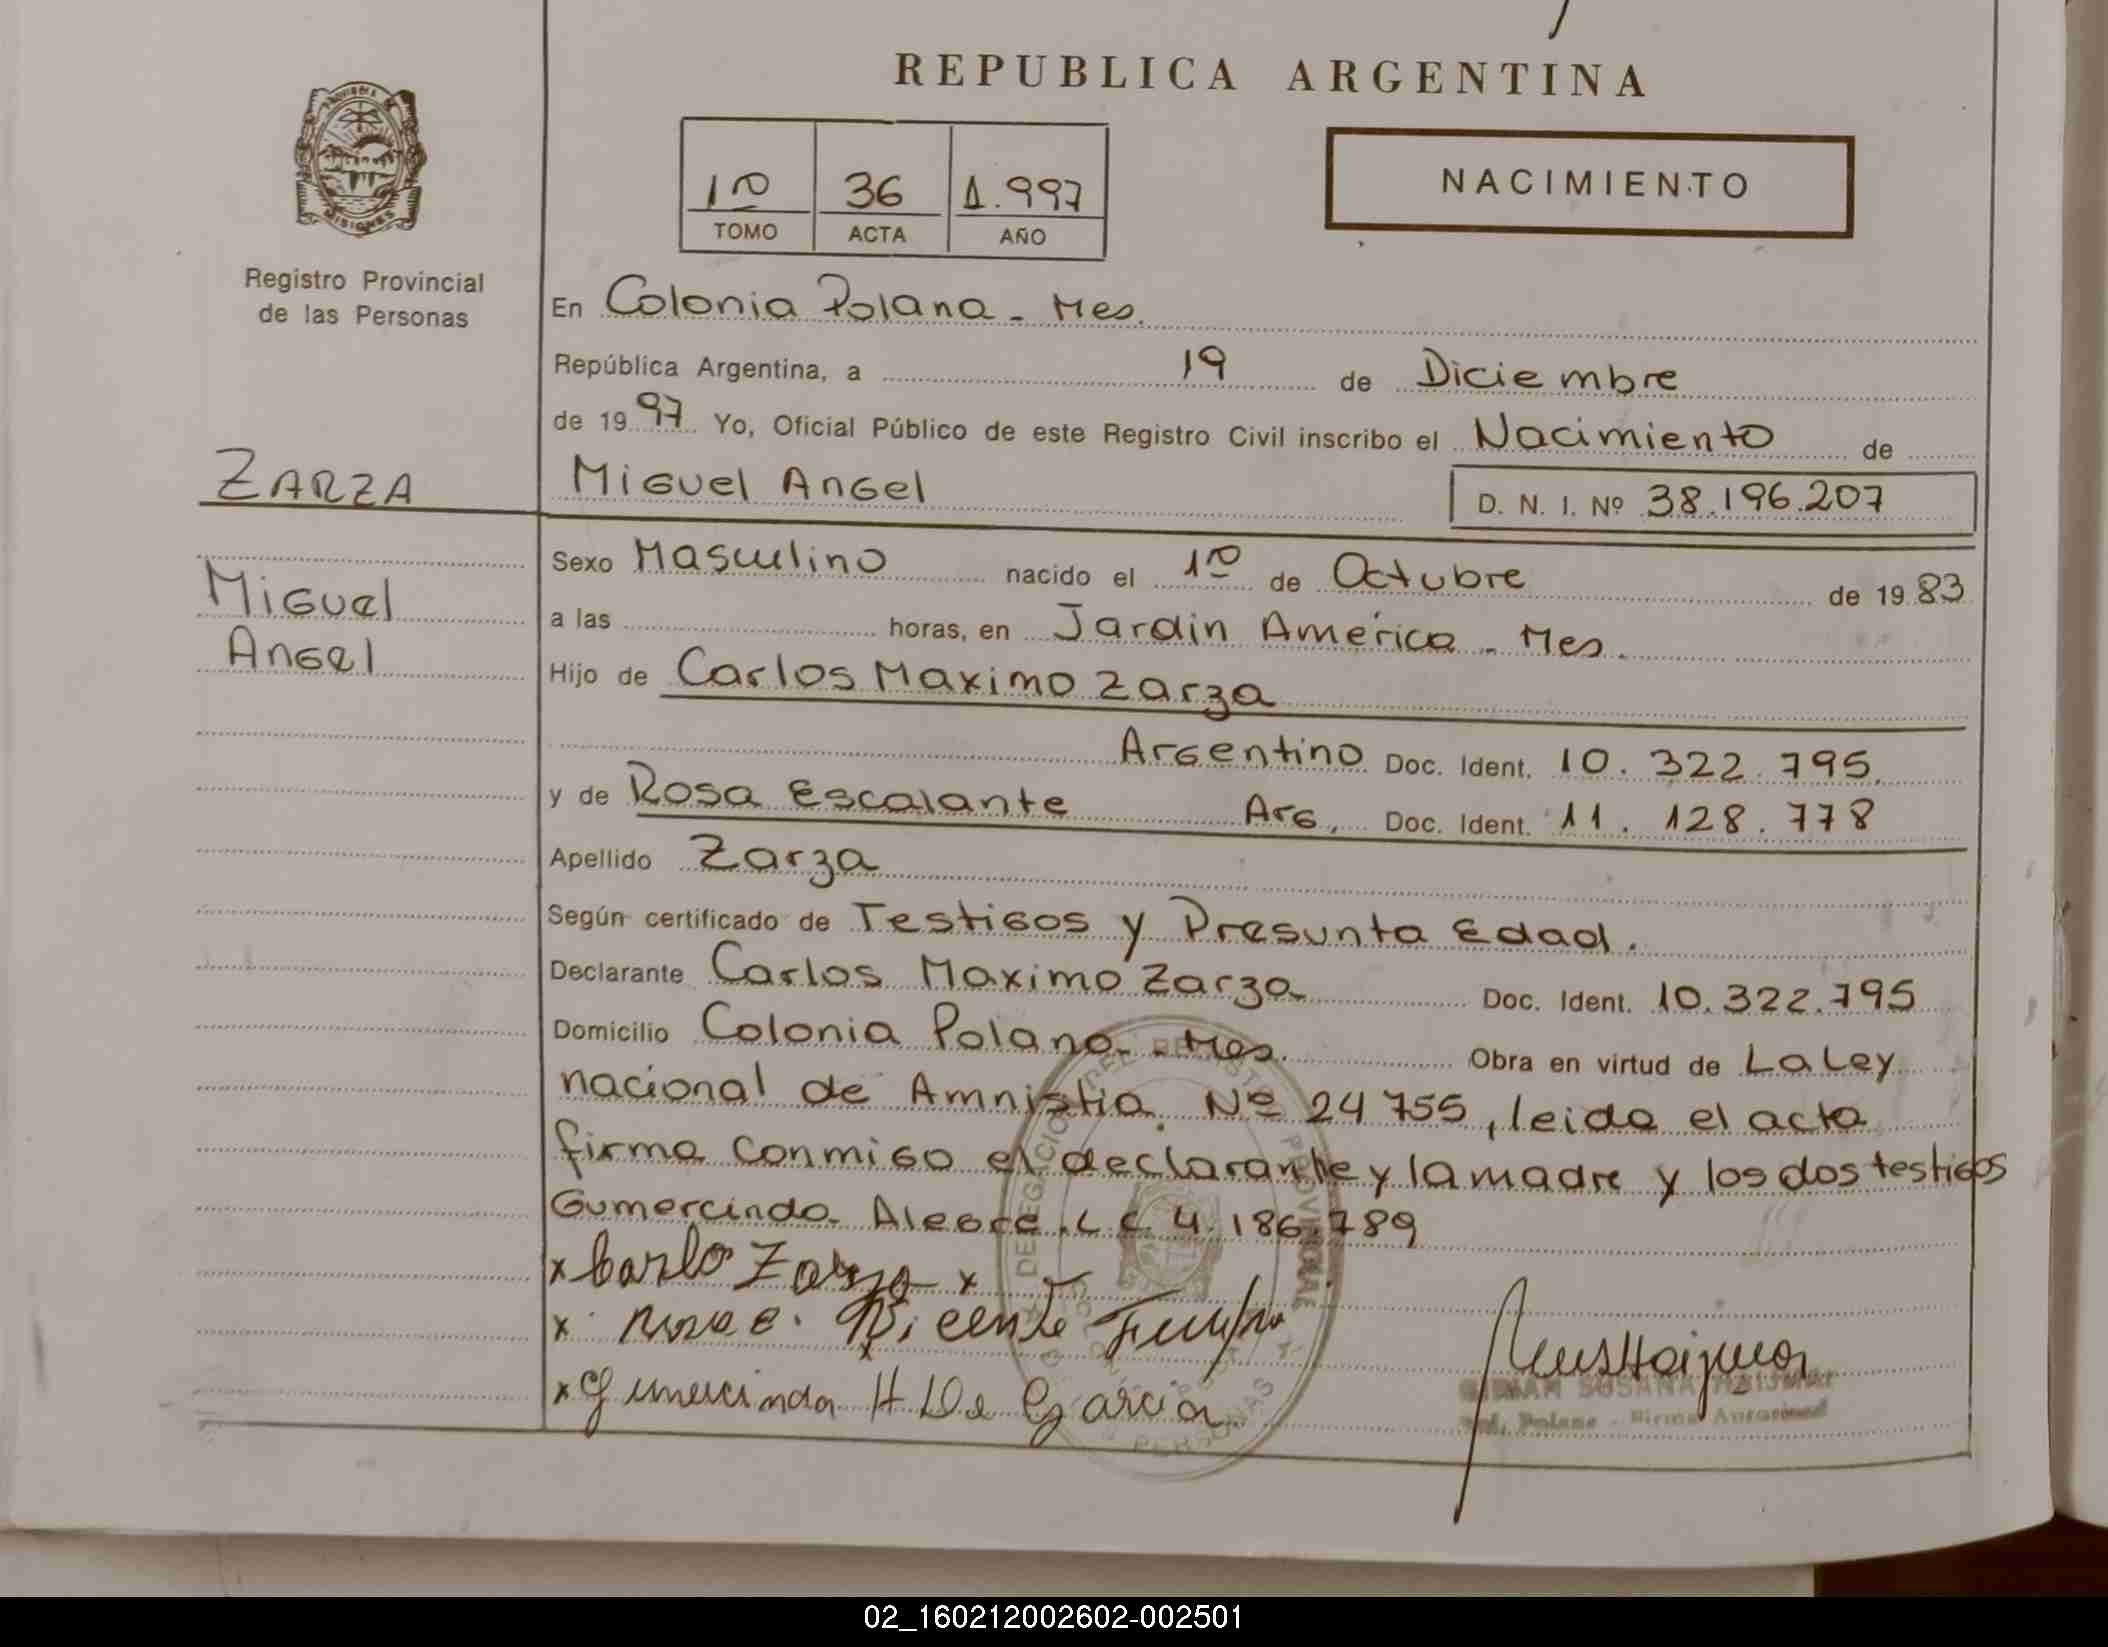 REPUBLICA ARGENTINA
PROVINCIA DE MISIONES
Registro Provincial
de las Personas
1ro 36 1.997
TOMO ACTA AÑO
NACIMIENTO
En Colonia Polana - Mes.
República Argentina, a 19 de Diciembre
de 1997 Yo, Oficial Público de este Registro Civil inscribo el Nacimiento de
ZARZA
Miguel Angel D. N. I. Nº 38.196.207
Miguel
Angel
Sexo Masculino nacido el 1ro de Octubre de 1983
a las horas, en Jardin América - Mes.
Hijo de Carlos Maximo Zarza
Argentino Doc. Ident. 10.322.795.
y de Rosa Escalante Arg, Doc. Ident. 11.128.778
Apellido Zarza
Según certificado de Testigos y Presunta Edad.
Declarante Carlos Maximo Zarza Doc. Ident. 10.322.795
Domicilio Colonia Polana - Mes. Obra en virtud de La Ley
nacional de Amnistia Nº 24755, leida el acta
firma conmigo el declarante y la madre y los dos testigos
Gumercinda Alegre, L C 4.186.789
x Carlo Zarza x
x Rosa E. Vicente
x Gumercinda H De Garcia
MIRIAM SUSANA
Col. Polana - Firma Autorizada
02_160212002602-002501